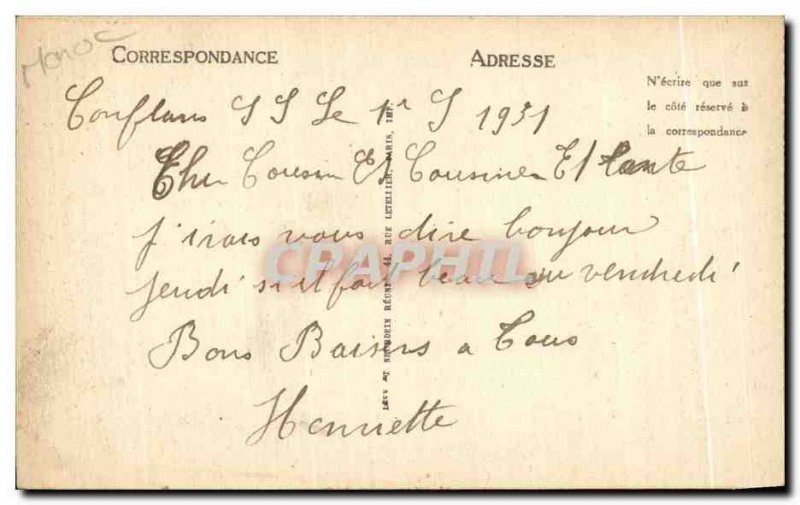 Maroc
CORRESPONDANCE
ADRESSE
N'écrire que sur
le côté réservé à
la correspondance
Conflans S S Le 1er S 1931
Cher Cousin Et Cousine Et tante
j'irais vous dire bonjour
jeudi s'il fait beau ou vendredi
Bons Baisers a Tous
Henriette
LÉVY ET NEURDEIN RÉUNIS, 44, RUE LETELLIER, PARIS, IMP.
CPAPHIL